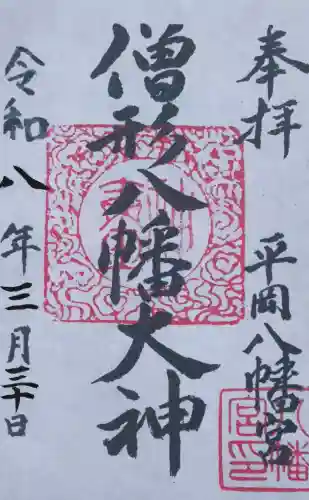 奉拝
平岡八幡宮
僧形八幡大神
令和八年三月三十日